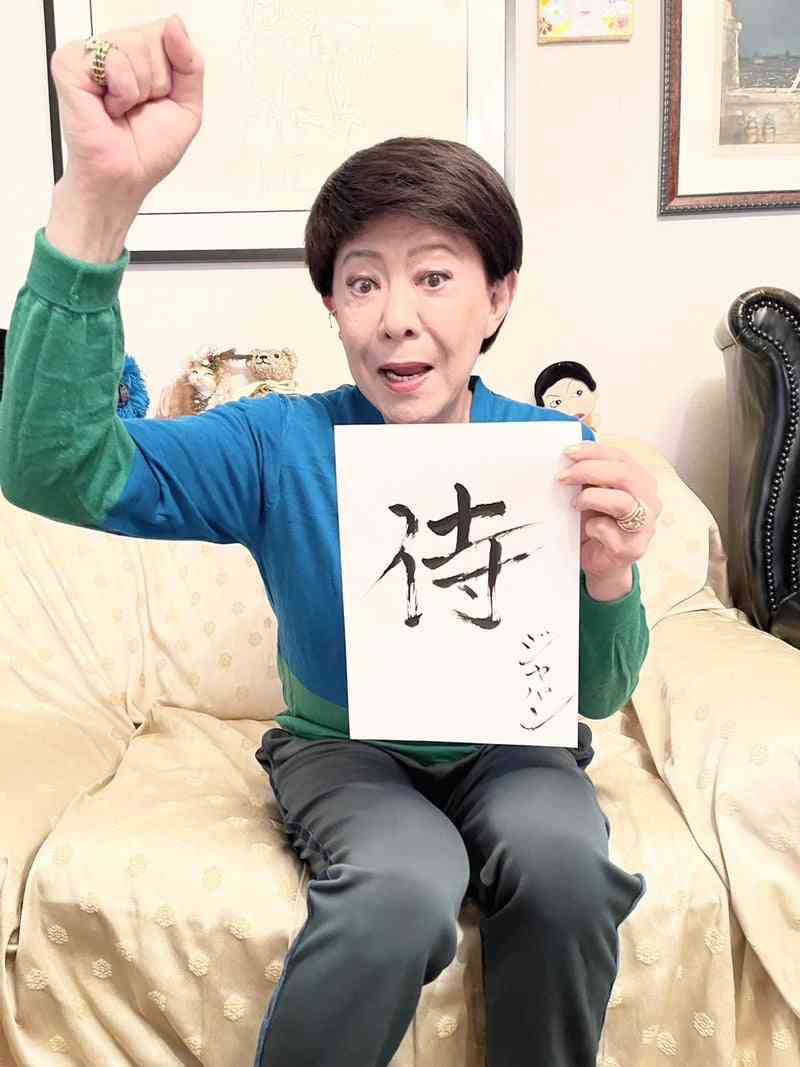 侍
ジャパン